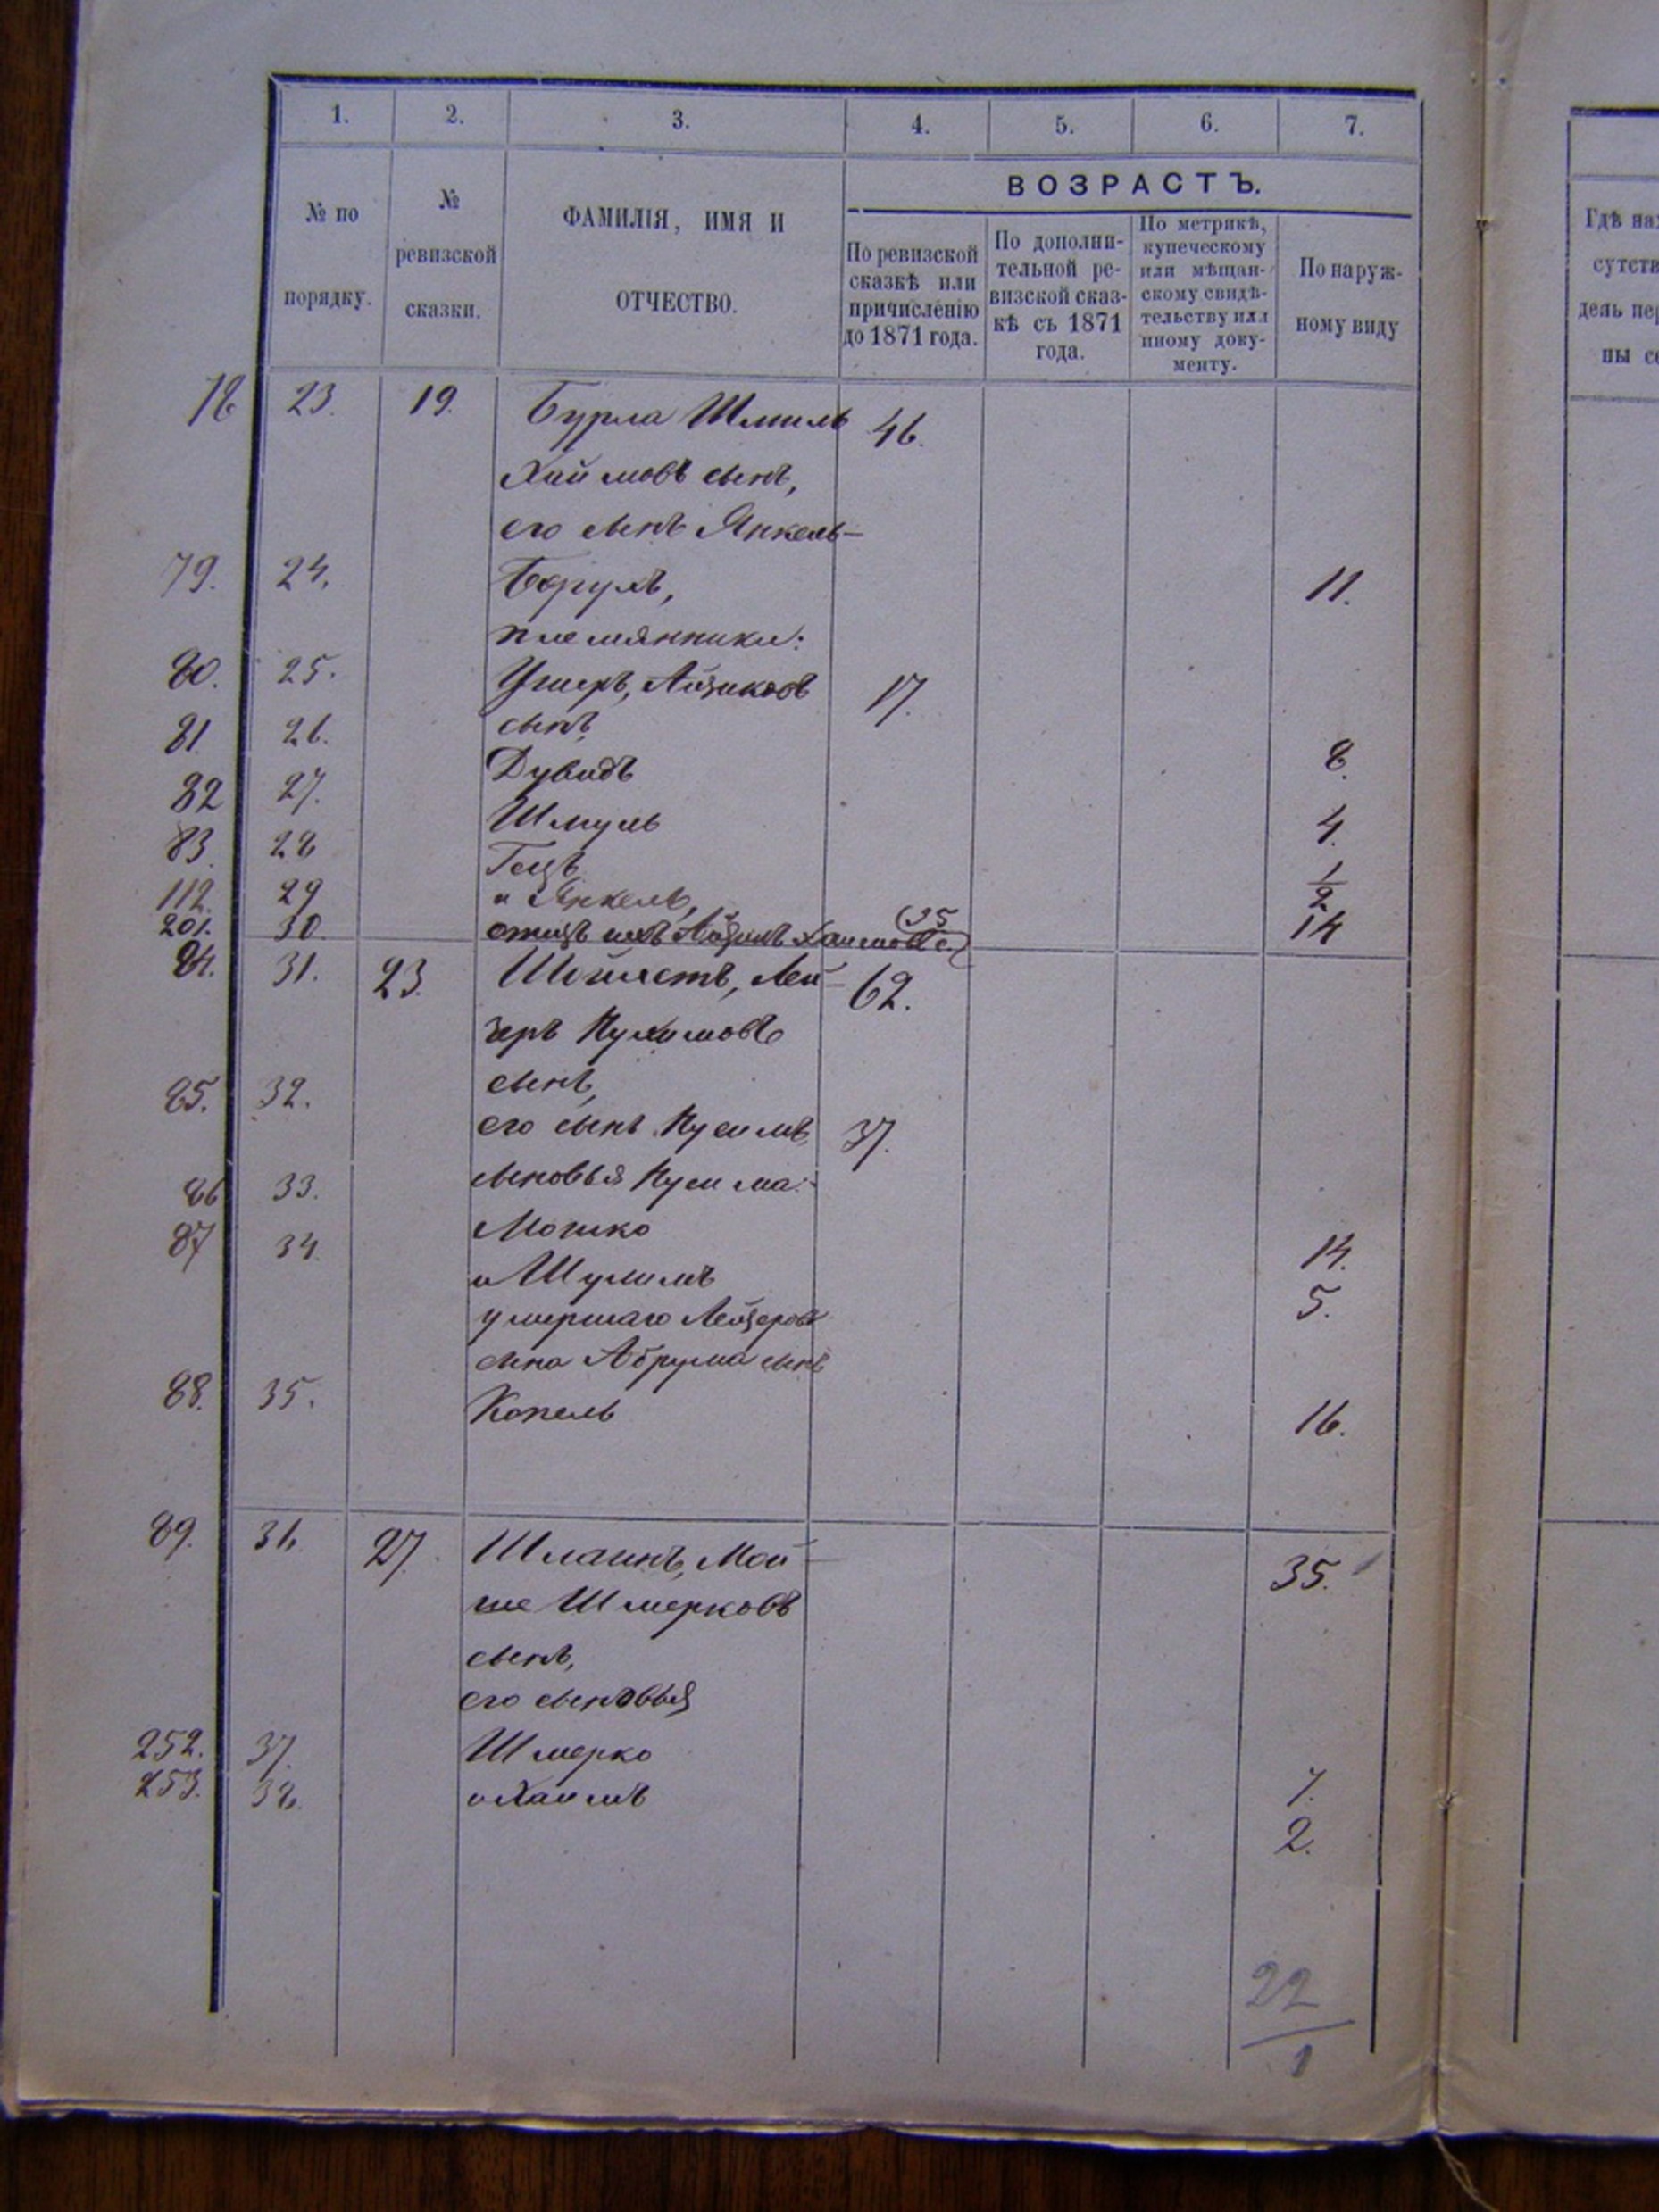 1. 2. 3. 4. 5. 6. 7.
№ по порядку.
№ ревизской сказки.
ФАМИЛІЯ, ИМЯ И
ОТЧЕСТВО.
ВОЗРАСТЪ.
По ревизской
сказкѣ или
причисленію
до 1871 года.
По дополни-
тельной ре-
визской сказ-
кѣ съ 1871
года.
По метрикѣ,
купеческому
или мѣщан-
скому свидѣ-
тельству или
иному доку-
менту.
По наруж-
ному виду
Гдѣ
78 23. 19. Бурла Шмиль 46.
Хаимовъ сынъ,
его сынъ Янкель-
79. 24. Борухъ, 11.
племянники:
80. 25. Ушеръ, Айзиковъ 17.
сынъ,
81 26. Дувидъ 8.
82 27. Шмуль 4.
83. 28 Гецъ 1/2
112. 29 и Янкель, 14
201. 30. отецъ ихъ Айзикъ Хаимовъ с. (35
84. 31. 23. Лей- 62.
зеръ
сынъ,
85. 32. его сынъ 37.
сыновья
86 33. Мошко 14.
87 34. и Шулимъ 5.
умершаго Лейзерова
сына Абрума сынъ
88. 35. Копель 16.
89. 36. 27. Мой- 35.
ше Шмерковъ
сынъ,
его сыновья
252. 37. Шмерко 7.
253. 38. и Хаимъ 2.
22
1